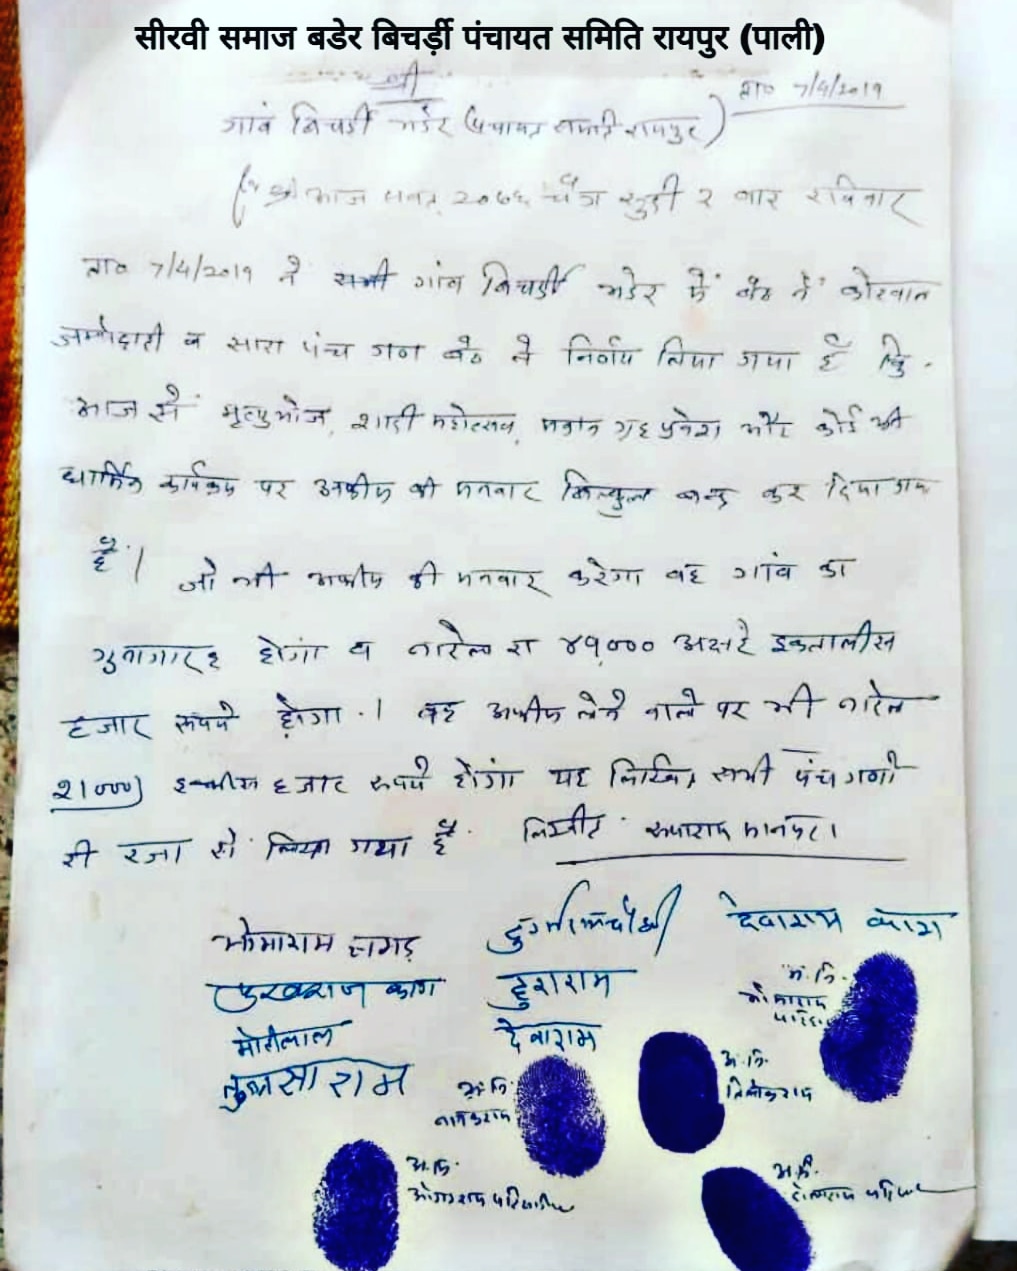 सीरवी समाज बडेर बिचर्ड़ी पंचायत समिति रायपुर (पाली)
श्री
ता० 7/4/2019
गांव बिचर्डी बडेर (पंचायत समति रायपुर)
आज समत् २०७६ चैत्र सुदी २ वार रविवार
ता० 7/4/2019 ने सभी गांव बिचर्डी बडेर में बेठ ने कोटवाल
जमादारी व सारा पंच गण बेठ ने निर्णय लिया गया है कि
आज से मृत्युभोज, शादी महोत्सव, मकान गृह प्रवेश और कोई भी
धार्मिक कार्यक्रम पर अफीम की मनवार बिल्कुल बन्द कर दिया गया
है। जो भी अफीम की मनवार करेगा वह गांव का
गुनागार होगा व नारेल रा ४१,००० अक्षरे इकतालीस
हजार रूपये होगा। वह अफीम लेने वाले पर भी नारेल
21000) इक्कीस हजार रूपये होगा यह लिखित सभी पंच गणो
री रजा से लिखा गया है. लिखीत रूपाराम
भोमाराम देवाराम
पुखराज काग
मोतीलाल देवाराम
तुलसाराम
अं. नि.
अं. नि.
अं. नि.
अं. नि.
अं. नि.